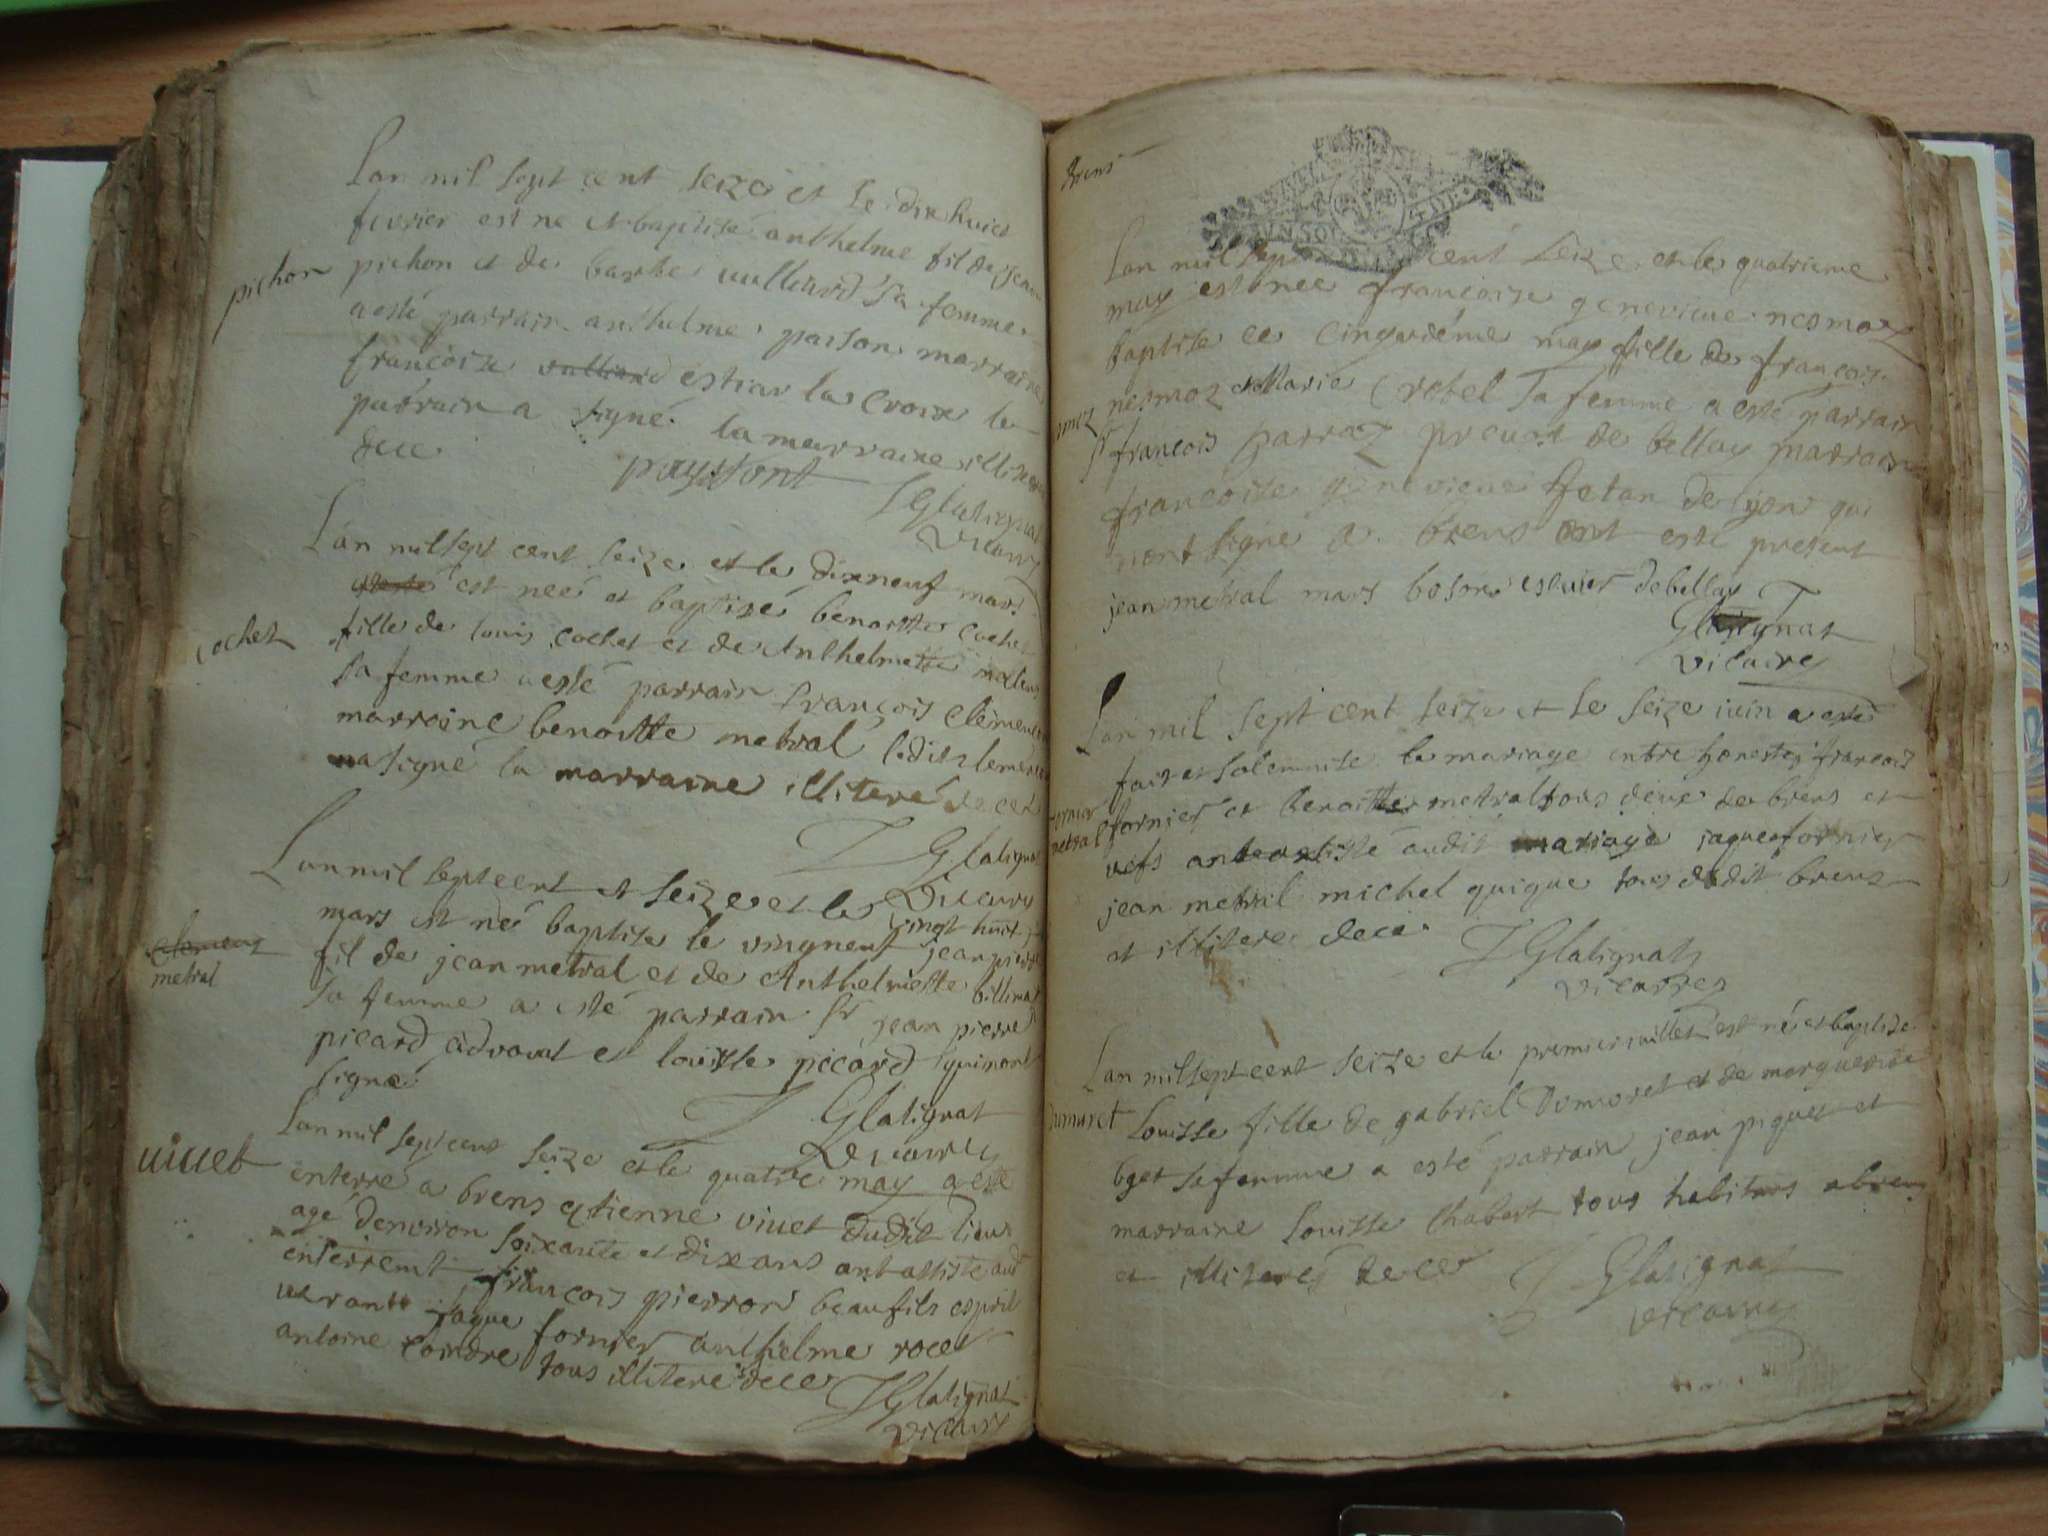 Lan mil sept cent seize et le dixhuict
feuvrier est ne et baptisé anthelme fil de jean
pichon
pichon et de barbe vulliard sa femme
a esté parrain anthelme paison marraine
francoise vulliard estiar la croix le
parrain a signé la marraine illiteré
dece
payssont
JGlatignat
vicaire
Lan mil sept cent seize et le dixneuf mars
est neé et baptisé benoitte cochet
cochet
fille de louis cochet et de Anthelmette
sa femme a esté parrain françois clement
marraine benoitte metral ledit clement
na signé la marraine illiteré de ce
J Glatignat
vicaire
Lan mil sept cent et seize et le vingt huit
mars est né baptise le vingneuf jean pierre
clement
metral
fil de jean metral et de Anthelmette billima
sa femme a esté parrain sr jean pierre
picard advocat et louisse piccard qui mont
signé
J Glatignat
vicaire
Lan mil sept cent seize et le quatre may a esté
viuet
enterré a brens etienne viuet dudit lieu
agé denviron soixante et dix ans ont assisté aud
enterremt françois pierron beaufils esprit
verant jaque fornier anthelme rocet
antoine coindre tous illiteré dece
JGlatignat
vicaire
brens
UN SOL
Lan mil sept cent seize et le quatrieme
may est nee francoise genevieue nesmoz
baptise ce cinquiéme may fille de françois
nesmoz et Marie Crobel sa femme a esté parrain
sr françois parraz prevost de bellay marraine
francoise genevieue de lyon qui
mont signé a brens ont esté present
jean metral mars boson escuier de bellay
J
Glatignat
vicaire
Lan mil sept cent seize et le seize iuin a esté
fait et solemnise le mariage entre honestes francois
fornier
metral
fornier et benoitte metral tous deux de brens et
vefs ont assisté audit mariage jaque fornier
jean metral michel guigue tous dudit brens
et illitere dece
J Glatignat
vicaire
Lan mil sept cent seize et le premier iuillet est né et baptisé
dumoret
Louisse fille de gabriel Domoret et de marguerite
bget sa femme a esté parrain jean piquet et
marraine louisse Chabert tous habitans a brens
et illiterés de ce
J Glatignat
vicaire